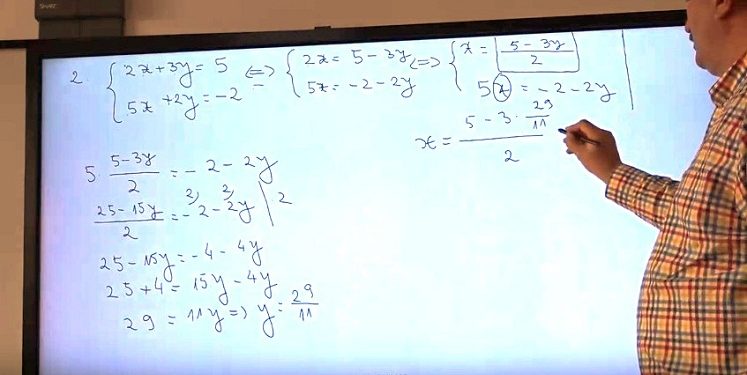 SMART
2. { 2x+3y=5 <=> { 2x=5-3y <=> { x = (5-3y)/2
{ 5x+2y=-2 { 5x=-2-2y { 5x=-2-2y
x = (5-3·29/11)/2
5·(5-3y)/2 = -2-2y
(25-15y)/2 = -2-2y | 2
25-15y=-4-4y
25+4=15y-4y
29=11y => y=29/11